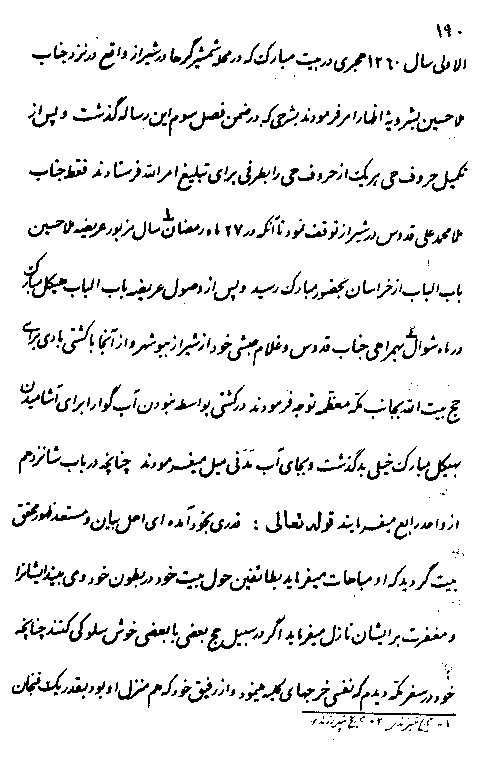 ۱۹۰
الاولی سال ۱۲۶۰ هجری در بیت مبارک که در محله شمشیرگرها در شیراز واقع در نزد جناب
ملا حسین بشرویه اظهار امر فرمودند بشرحی که در ضمن فصل سوم این رساله گذشت و پس از
تکمیل حروف حی هریک از حروف حی را بطرفی برای تبلیغ امرالله فرستادند فقط جناب
ملا محمد علی قدوس در شیراز توقف نمود تا آنکه در ۲۷ ماه رمضان سال مزبور عریضه ملا حسین
باب الباب از خراسان بحضور مبارک رسید و پس از وصول عریضه باب الباب هیکل مبارک
در ماه شوال بهمراهی جناب قدوس و غلام حبشی خود از شیراز ببوشهر و از آنجا با کشتی بادی برای
حج بیت الله بجانب مکه معظمه توجه فرمودند در کشتی بواسطه نبودن آب گوارا برای آشامیدن
بهیکل مبارک خیلی بد گذشت و بجای آب مدنی میل میفرمودند چنانچه در باب شانزدهم
از واحد رابع میفرمایند قوله تعالی : قدری بخود آمده ای اهل بیان و مستعد ظهور محقق
بیت گردید که او مباحات میفرماید بطائفین حول بیت خود در بطون خود و می بیند ایشانرا
و مغفرت بر ایشان نازل میفرماید اگر در سبیل حج بعضی با بعضی خوش سلوکی کنند چنانچه
خود در سفر مکه دیدم که نفسی خرجهای کلیه مینمود و از رفیق خود که هم منزل او بود بقدر یک فنجان